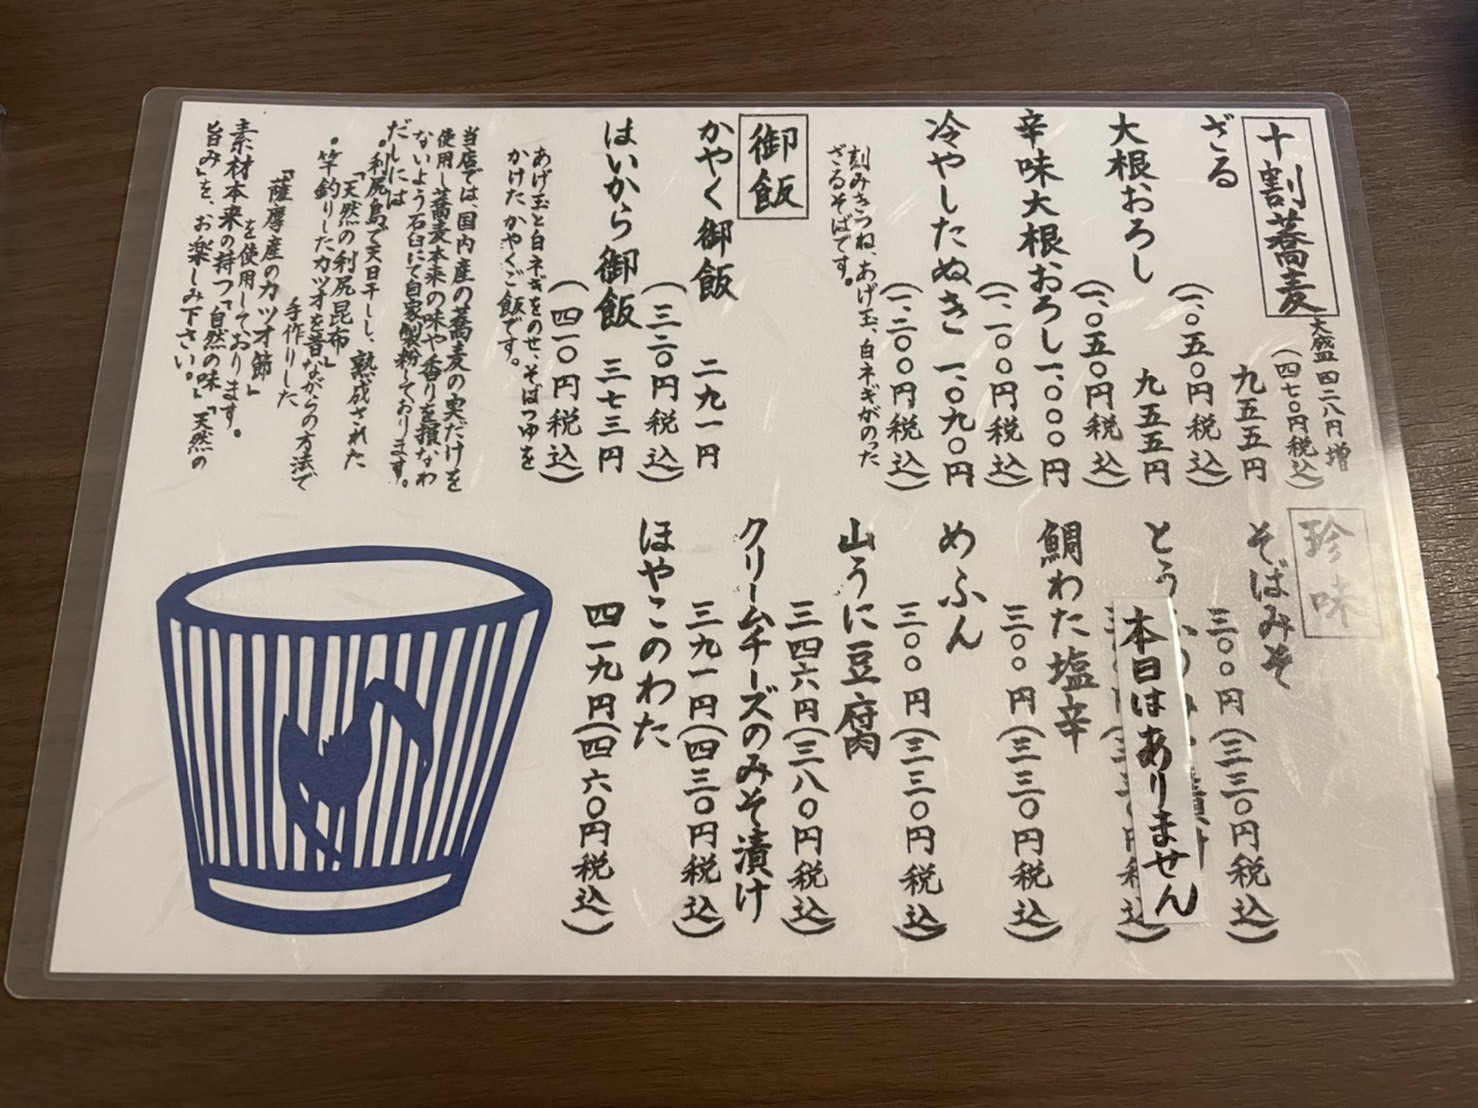 十割蕎麦
大盛四二八円増
(四七〇円税込)
ざる
九五五円
(一、〇五〇円税込)
大根おろし
九五五円
(一、〇五〇円税込)
辛味大根おろし 一、〇〇〇円
(一、一〇〇円税込)
冷やしたぬき 一、〇九〇円
(一、二〇〇円税込)
刻みきつね、あげ玉、白ネギがのった
ざるそばです。
御飯
かやく御飯 二九一円
(三二〇円税込)
はいから御飯 三七三円
(四一〇円税込)
あげ玉と白ネギをのせ、そばつゆを
かけたかやくご飯です。
当店では、国内産の蕎麦の実だけを
使用し蕎麦本来の味や香りを損なわ
ないよう石臼にて自家製粉しております。
だしには
・利尻島で天日干しし、熟成された
「天然の利尻昆布」
・竿釣りしたカツオを昔ながらの方法で
手作りした
「薩摩産のカツオ節」
を使用しております。
素材本来の持つ「自然の味」「天然の
旨み」を、お楽しみ下さい。
珍味
そばみそ
三〇〇円(三三〇円税込)
とう
本日はありません
鯛わた塩辛
三〇〇円(三三〇円税込)
めふん
三〇〇円(三三〇円税込)
山うに豆腐
三四六円(三八〇円税込)
クリームチーズのみそ漬け
三九一円(四三〇円税込)
ほやこのわた
四一九円(四六〇円税込)